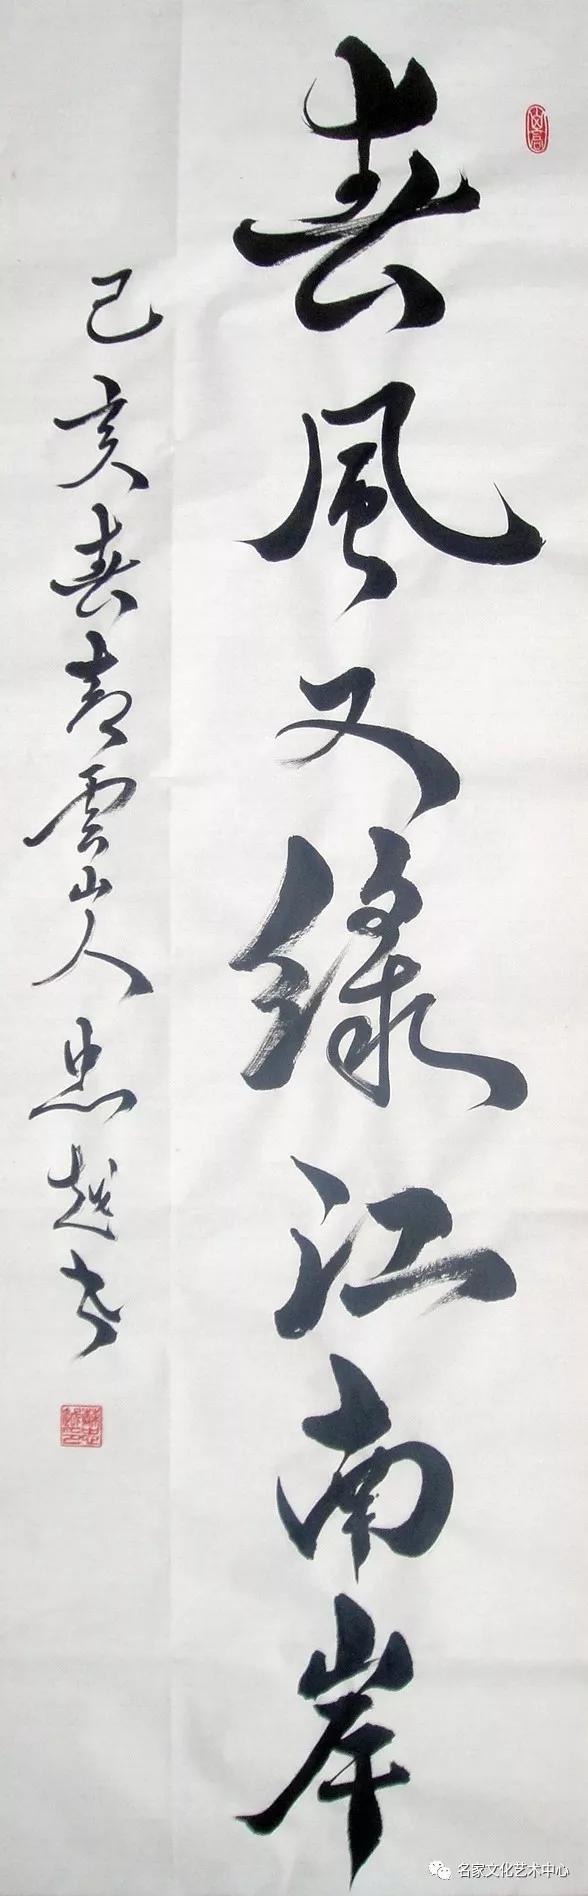 春風又綠江南岸
己亥春青雲山人忠越书
名家文化艺术中心